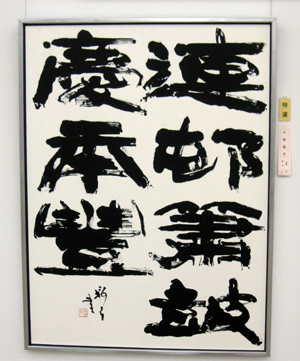 連邨簫鼓
慶年豐
特選